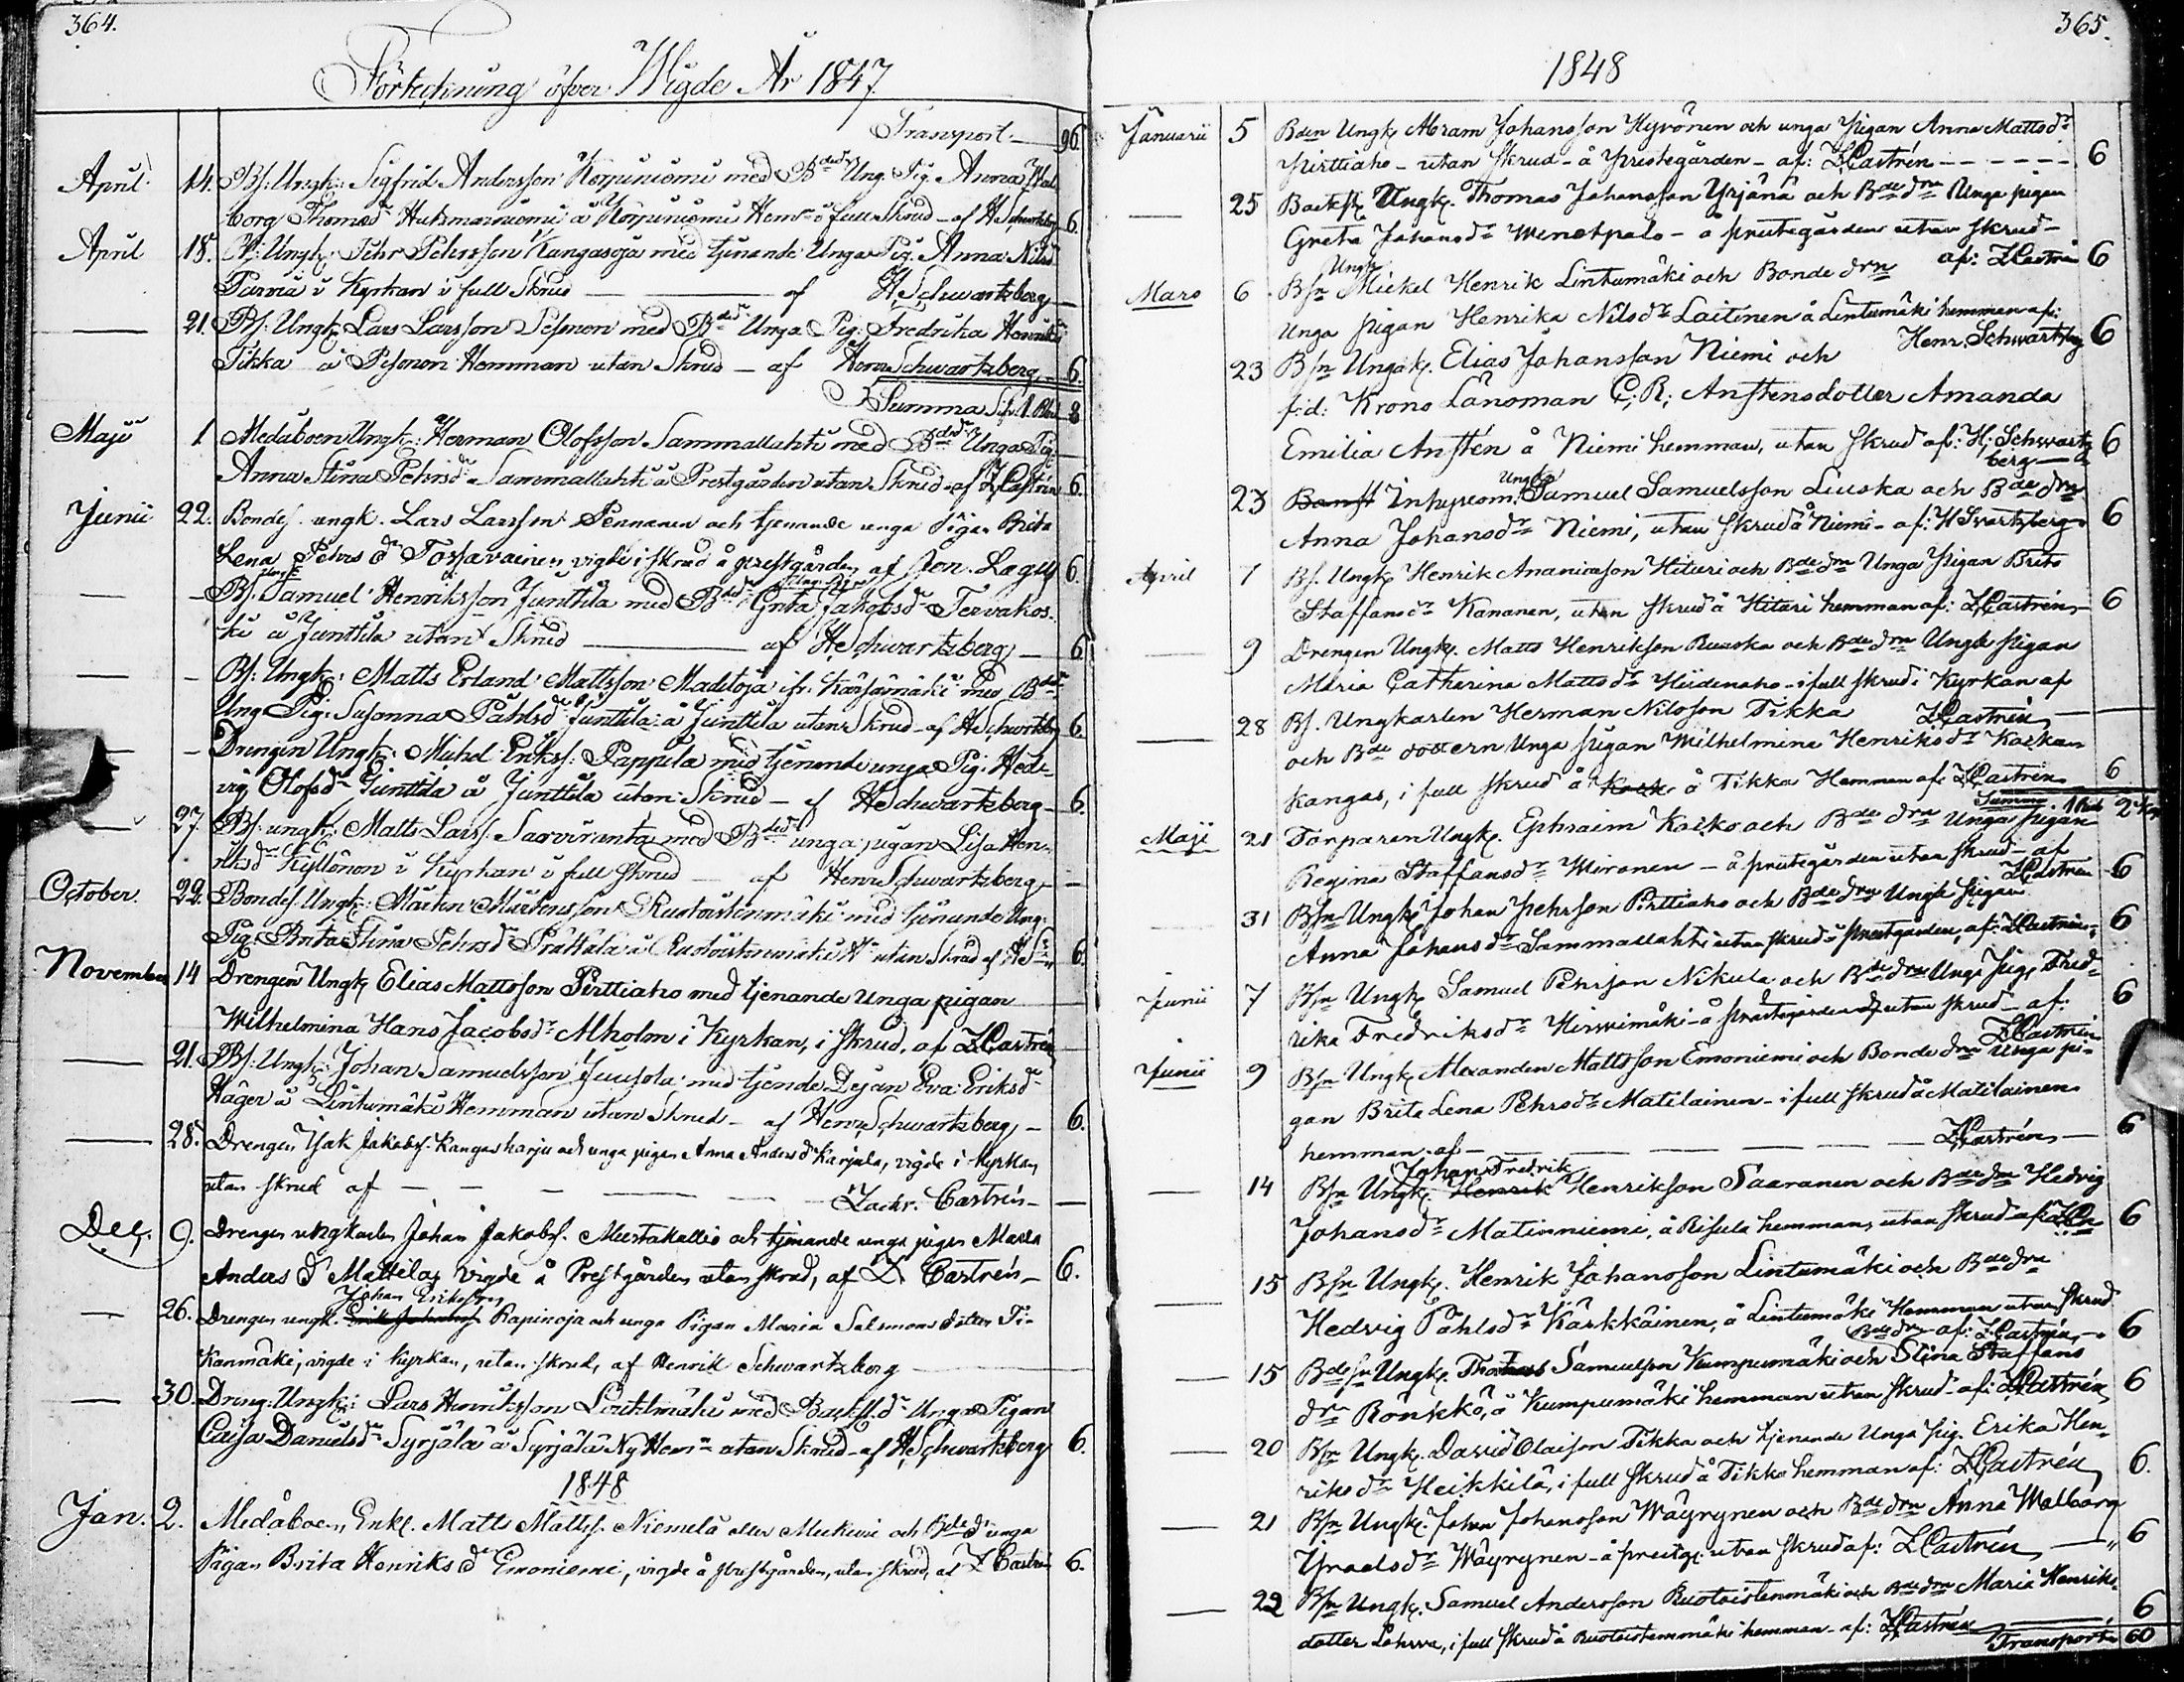 364.
Förteckning öfver Wigde År 1847
Transport 96.
April 14. Bs. Ungk: Sigfrid Andersson Korpuniemi med Bdedr Ung. Pig. Anna Wal-
borg Thomsdr Huhmarniemi å Korpuniemi Hemn i full Skrud - af HSchwartzberg 6.
April 18. Bs: Ungk: Pehr Pehrsson Kangasoja med tjenande Unga Pig. Anna Nilsd
Parvia i Kyrkan i full Skrud — af HSchwartzberg —
— 21. Bs: Ungk: Lars Larsson Pesonen med Bdedr Unga Pig: Fredrika Henriks
Tikka å Pesonen Hemman utan Skrud — af Henr Schwartzberg 6.
Summa Silf. 1 Rbl 8
Maji 1 Medåboen Ungk: Herman Olofsson Sammallahti med Bdedr Unga Pig.
Anna Stina Pehrsdr Sammallahti å Prestgården utan Skrud - af Z Castrén 6.
Junii 22. Bondes. ungk. Lars Larsson Pennanen och tjenande unga Pigan Brita
Lena Pehrs dr Tossavainen vigde i skrud å prestgården af Jon. Lagus 6.
— — Bs. Ungk Samuel Henriksson Junttila med Bdedr Ung Pigan Greta Jakobsdr Tervakos-
ki å Junttila utan Skrud — af HSchwartzberg — 6
— — Bs: Ungk: Matts Erland Mattsson Maditoja ifr. Kärsämäki med Bdedr
Ung Pig: Susanna Påhlsdr Junttila å Junttila utan Skrud - af HSchwartzberg 6.
— — Drengen Ungk: Michel Erikss: Pappila med tjenande unga Pig: Hed-
vig Olofsdr Junttila å Junttila utan Skrud — af HSchwartzberg — 6.
— 27. Bs: ungk: Matts Larss. Sarviranta med Bdedr unga pigan Lisa Hen-
riksdr Kyllönen i Kyrkan i full Skrud — af Henr Schwartzberg —
October. 22. Bondes. Ungk: Mårten Mårtensson Ruotoistenmäki med tjenande Ung.
Pig: Brita Stina Pehrsdr Prättälä å Ruotoistenmäki Hn utan Skrud af HS 6.
November 14 Drengen Ungk Elias Mattsson Pirttiaho med tjenande Unga pigan
Wilhelmina Hans Jacobsdr Alholm i Kyrkan, i skrud. af ZCastrén
— 21. Bs: Ungk: Johan Samuelsson Juusola med tjende Dejan Eva Eriksdr
Häger å Lintumäki Hemman utan Skrud - af Henr Schwartzberg — 6.
— 28. Drengen Isak Jakobs. Kangasharju och unga pigan Anna Anders dr Karjula, vigde i Kyrkan,
utan skrud af — — — — — Zachr. Castrén —
Dec. 9. Drengen ungkarlen Johan Jakobs. Mustakallio och tjenande unga pigan Maria
Anders dr Mattila, vigde å Prestgården utan skrud, af Z. Castrén — 6.
— 26. Drengen ungk. Johan Eriksson Rapinoja och unga Pigan Maria Salomons dotter Ti-
kanmäki, vigde i kyrkan, utan skrud, af Henrik Schwartzberg
— 30. Dreng: Ungk: Lars Henriksson Loukimäki med Backst. dr Unga Pigan
Caisa Danielsdr Syrjälä å Syrjälä Ny Hemn utan Skrud - af HSchwartzberg 6.
1848
Jan. 2. Medåboen, Enkl. Matts Matss. Niemelä eller och Bdedr unga
Pigan Brita Henriks dr Emoniemi, vigde å prestgården, utan skrud, af Z Castrén 6.
365.
1848
Januarii 5 Bden Ungk Abram Johansson Hyvönen och unga Pigan Anna Mattsdr
Pirttiaho - utan skrud - å Prestegården - af: ZCastrén - - - - - 6
— 25 Backst Ungk. Thomas Johansson Yrjänä och Bde drn Unga pigan
Greta Johansdr Wenetpalo - å prestegården utan skrud -
af: ZCastrén 6
Mars 6 Bsn Ungk Mickel Henrik Lintumäki och Bonde drn
Unga pigan Henrika Nilsdr Laitinen å Lintumäki hemman af:
Henr. Schwartzbg 6
23 Bsn Ungdk. Elias Johansson Niemi och
f.d: Krono Länsman C; R; Anstensdotter Amanda
Emilia Anstén å Niemi hemman, utan skrud af: H; Schwartz
berg — 6
23 Bonst Inhyseom. Ungkn Samuel Samuelsson Liuska och Bde drn
Anna Johansdr Niemi, utan skrud å Niemi - af: H Svartzberg 6
April 7 Bs. Ungk Henrik Ananiasson Hituri och Bde drn Unga Pigan Brita
Staffansdr Kananen, utan skrud å Hituri hemman af: ZCastrén 6
— 9 Drengen Ungk. Matts Henrikson Ruuska och Bde drn Unga pigan
Maria Catharina Matts dr Hiidenaho - i full skrud i Kyrkan af
ZCastrén —
— 28 Bs. Ungkarlen Herman Nilsson Tikka
och Bde dottern Unga pigan Wilhelmina Henriksdr Kaikan
kangas, i full skrud å Kark å Tikka Hemman af: ZCastrén 6
Summa 1 Rub 2 kop
Maji 21 Torparen Ungk. Ephraim Karko och Bde drn Unga pigan
Regina Staffansdr Mironen - å prestegården utan skrud - af
ZCastrén 6
31 Bsn Ungk Johan Pehrson Pirttiaho och Bde drn Unga Pigan
Anna Johansdr Sammallahti utan skrud å prestgården, af: ZCastrén 6
Junii 7 Bsn Ungk Samuel Pehrson Nikula och Bde drn Unga Pig. Fred-
rika Fredriksdr Hirvimäki - å prestegården utan skrud - af:
ZCastrén 6
Junii 9 Bsn Ungk Alexander Mattsson Emoniemi och Bonde drn Unga pi-
gan Brita Lena Pehrsdr Matilainen - i full skrud å Matilainen
hemman. af — — — — ZCastrén — 6
— 14 Bsn Ungk. Johan Fredrik Henrik Henrikson Saaranen och Bde drn Hedvig
Johansdr Matinniemi, å Risula hemman, utan skrud - af: ZCn 6
— 15 Bsn Ungk. Henrik Johansson Lintumäki och Bde drn
Hedvig Påhlsdr Kärkkäinen, å Lintumäki Hemman utan skrud
af: ZCastrén, — 6
— 15 Bdesn Ungk. Thomas Samuelson Kumpumäki och Bde drn Stina Staffans
drn Rönkkö, å Kumpumäki hemman utan skrud - af: ZCastrén 6
— 20 Bsn Ungk. David Olaison Tikka och tjenande Unga Pig. Erika Hen-
riksdr Heikkilä, i full skrud å Tikka hemman af: ZCastrén, 6.
— 21 Bsn Ungk. Johan Johansson Wäyrynen och Bde drn Anna Walborg
Israelsdr Wäyrynen - å prestg: utan skrud af: ZCastrén — 6
— 22 Bsn Ungk. Samuel Andersson Ruotoistenmäki och Bde drn Maria Henriks-
dotter Lohwa, i full skrud å Ruotoistenmäki hemman - af: ZCastrén 6
Transport 60